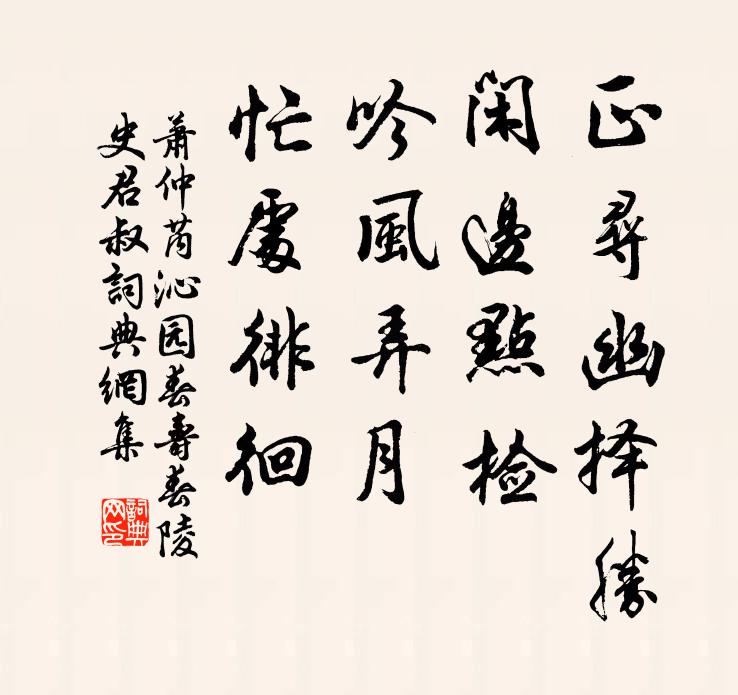 正尋幽择勝
闲邊點檢
吟風弄月
忙處徘徊
蕭仲芮沁园春壽春陵
史君叔詞典網集
詞典网印